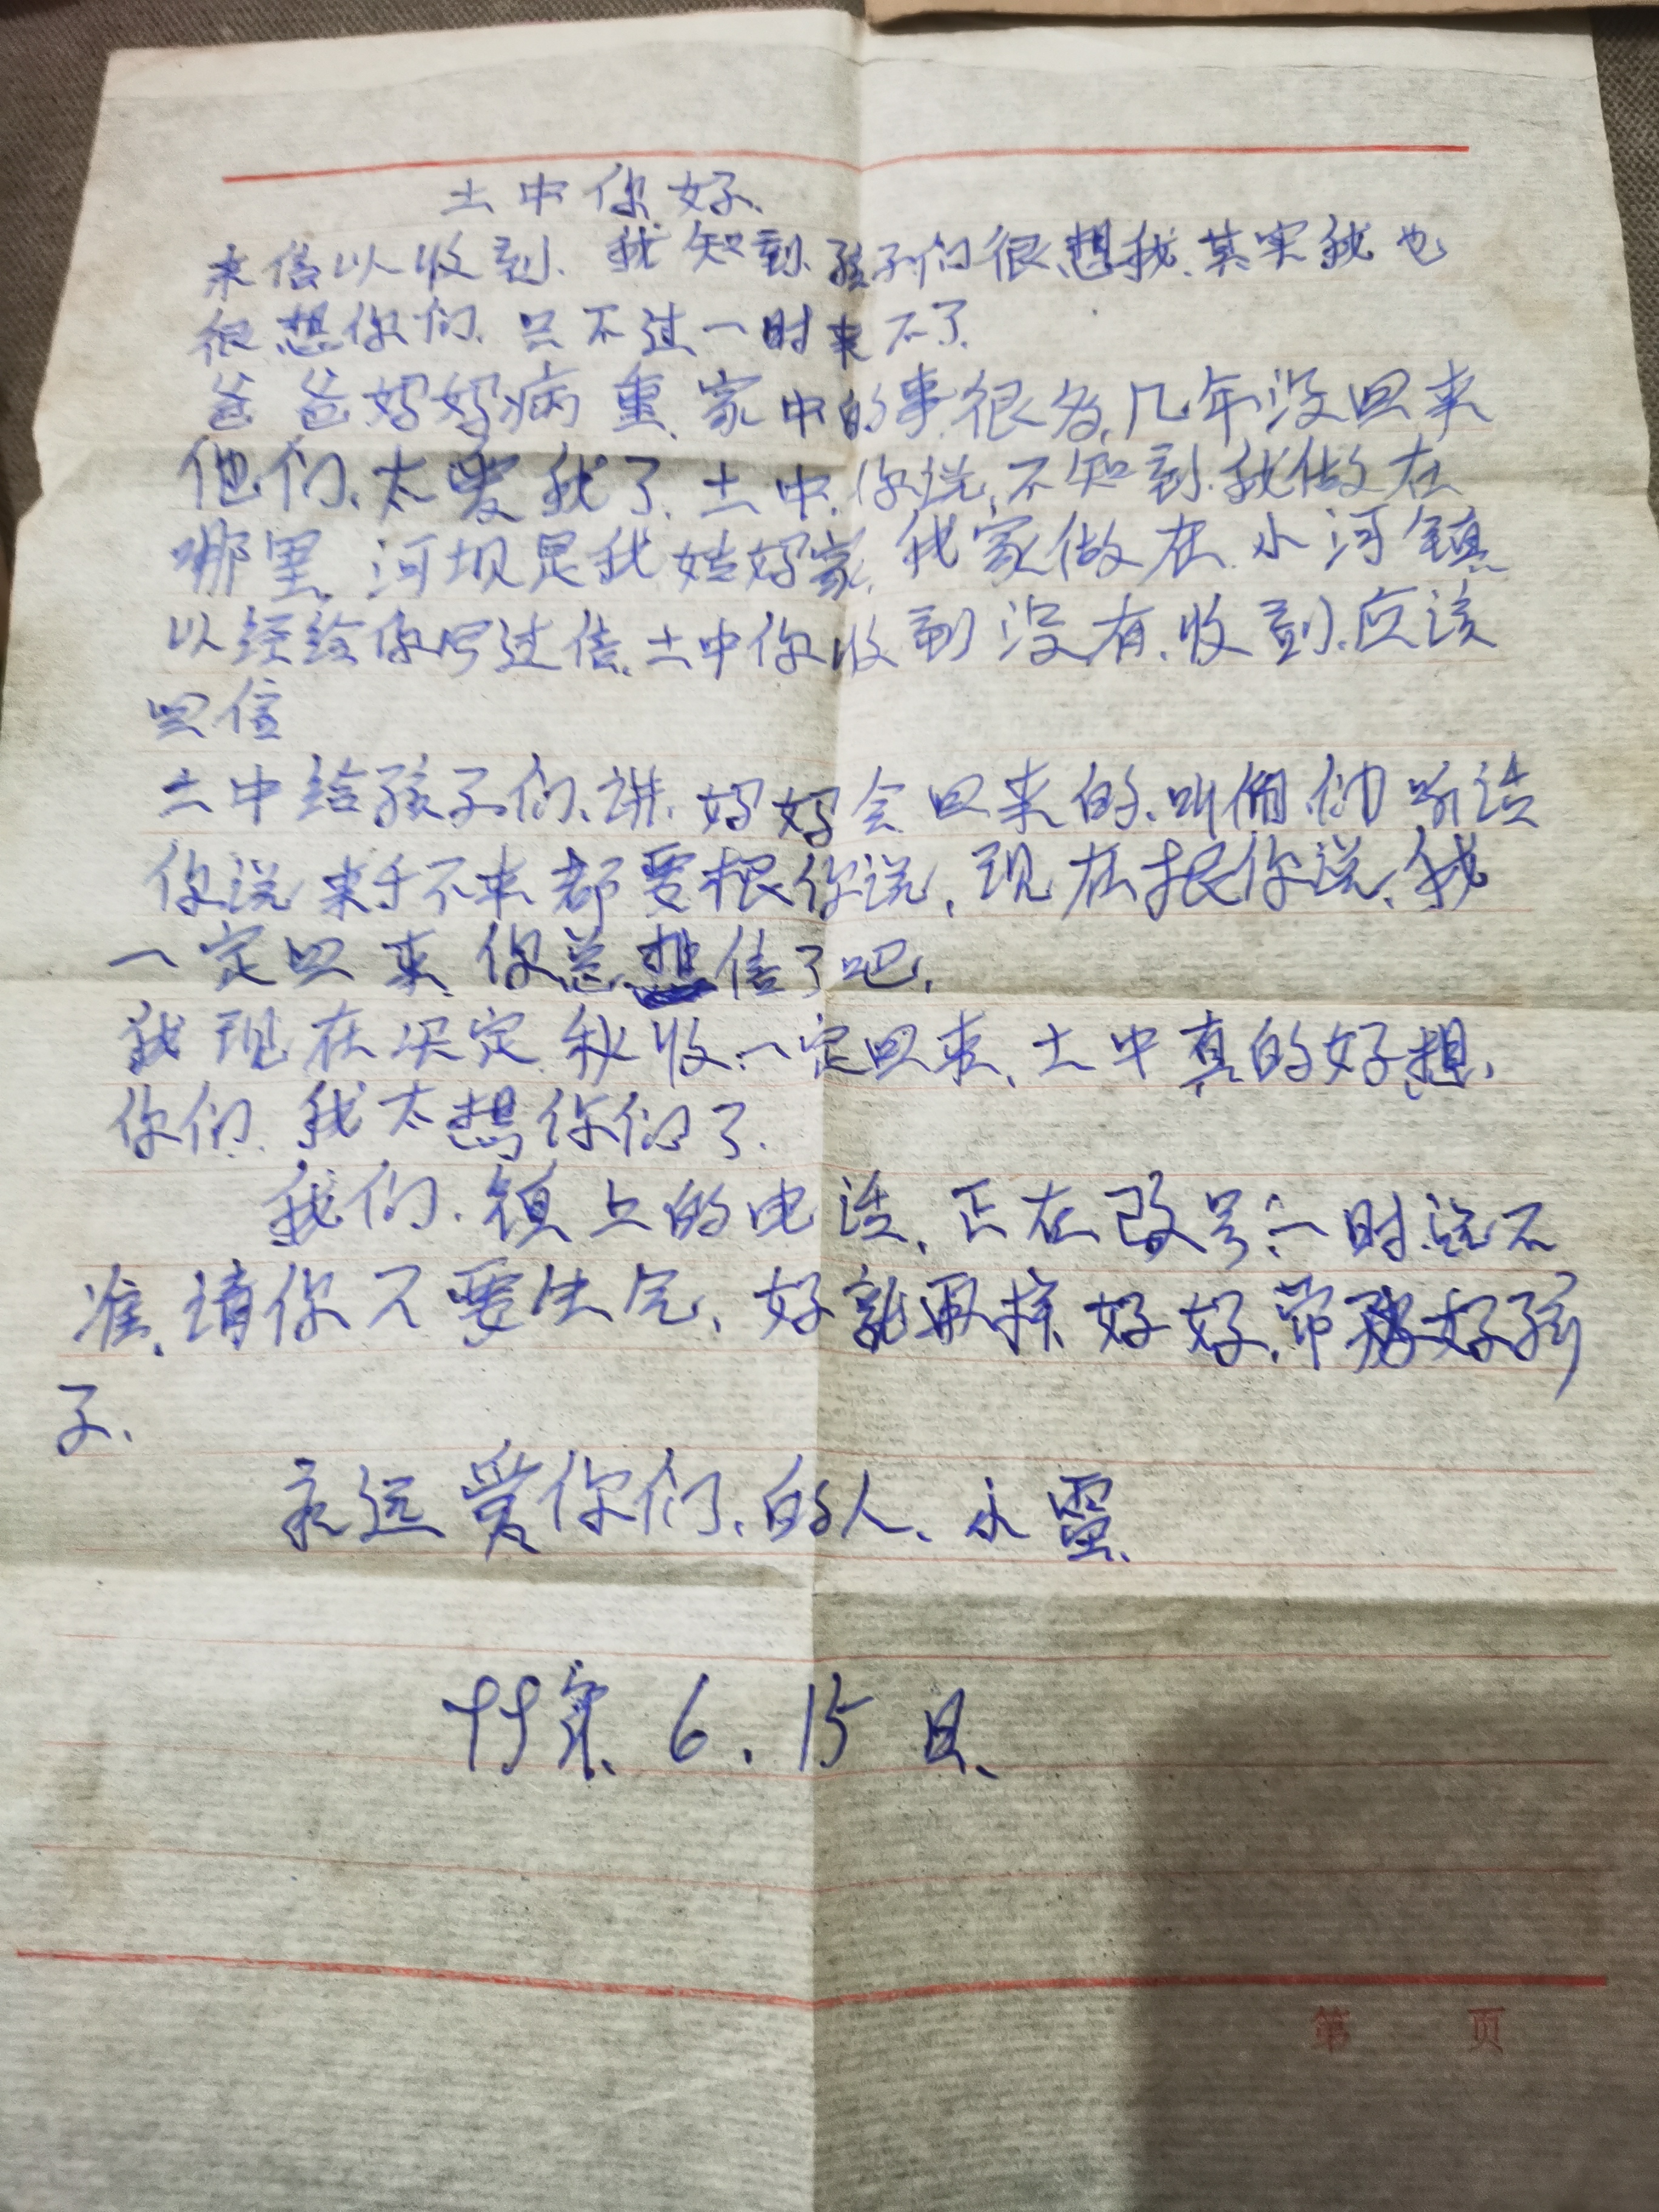 土中你好.
来信以收到.我知到.孩子们很想我.其实我也
很想你们.只不过一时来不了.
爸爸妈妈病重.家中的事很多.几年没回来
他们.太爱我了.土中.你说.不知到.我做在
哪里.河坝是我姑妈家.我家做在.小河镇
以经给你写过信.土中你收到没有.收到.应该
回信
土中给孩子们.讲.妈妈会回来的.叫他们听话
你说来于不来都要根你说,现在根你说.我
一定回来.你总想信了吧.
我现在决定.秋收.一定回来.土中真的好想.
你们.我太想你们了.
我们.镇上的电话,正在改号.一时说不
准.请你不要生气.好 好好.带 好孩
子.
永远爱你们.的人.永
99年.6.15日.
第 页